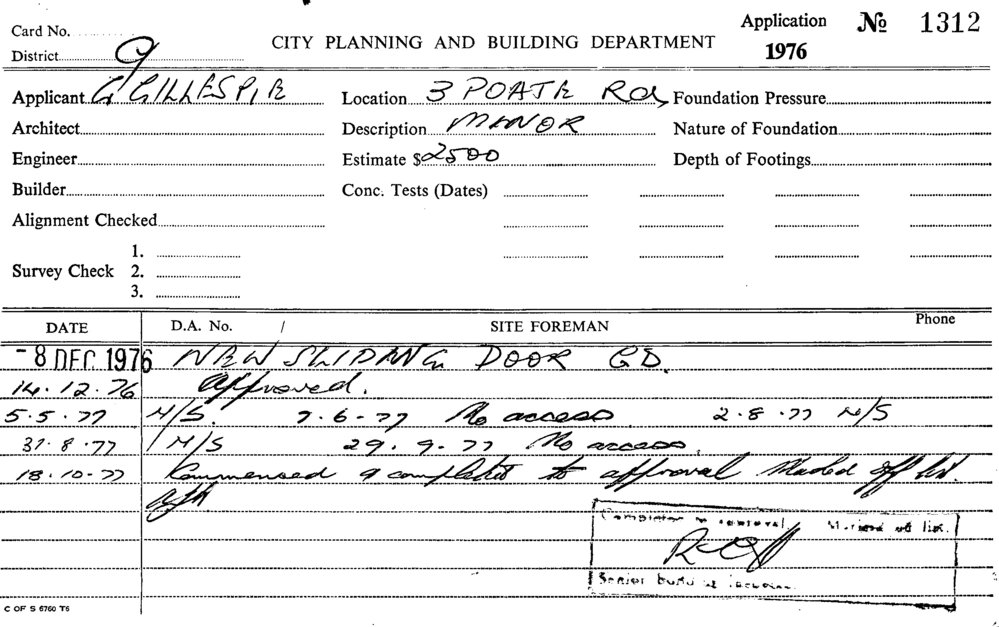 Card No.
Application No 1312
District 9
CITY PLANNING AND BUILDING DEPARTMENT
1976
Applicant G GILLESPIE Location 3 POATE Rd, Foundation Pressure
Architect Description MANOR Nature of Foundation
Engineer Estimate $2500 Depth of Footings
Builder Conc. Tests (Dates)
Alignment Checked
Survey Check 1.
2.
3.
DATE D.A. No. / SITE FOREMAN Phone
-8 DEC 1976 NEW SLIDING DOOR GD.
14.12.76 approved.
5.5.77 N/S. 7.6.77 No access 2.8.77 N/S
31.8.77 N/S 29.9.77 No access
18.10.77 Commensed & completed to approval Marked off list.
Completion to approval. Marked off list.
Senior building
C OF S 6760 T6